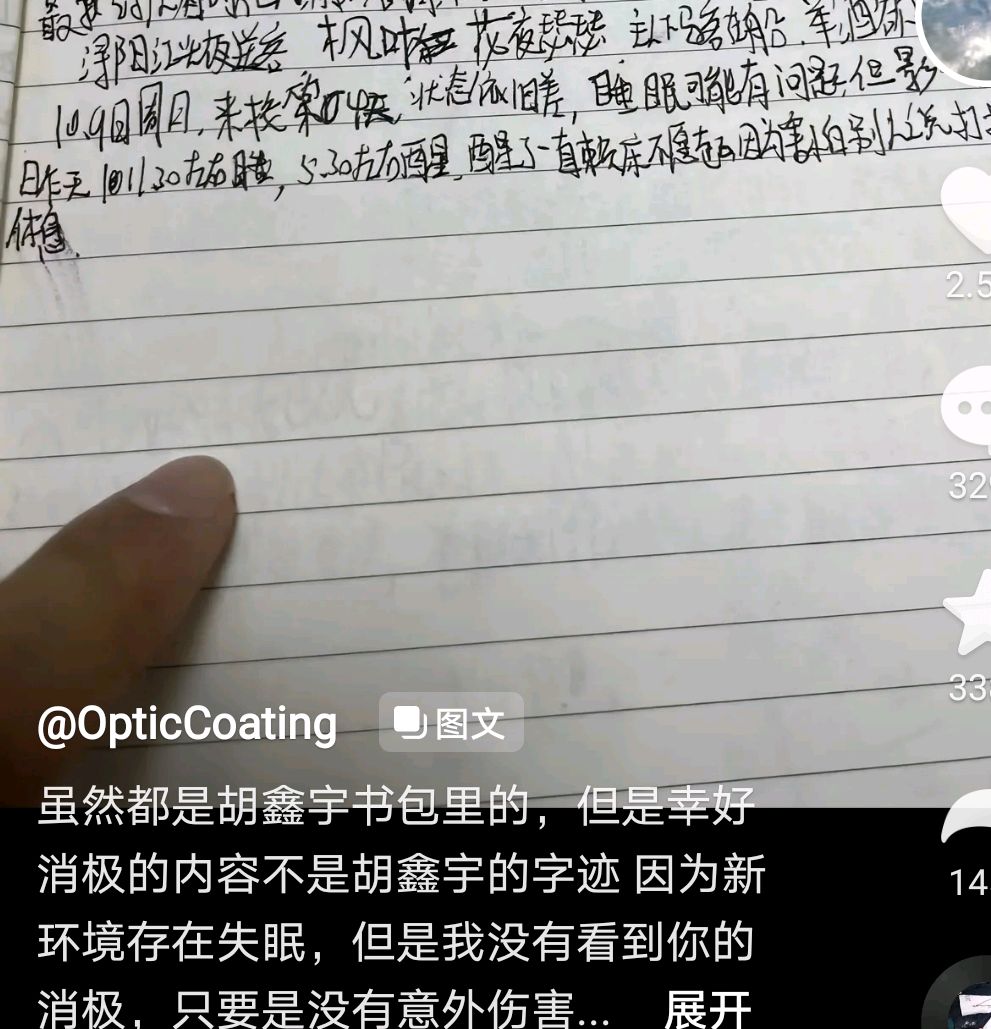 浔阳江头夜送客 枫叶 花夜瑟瑟 主人下马客在船.
10.9日周日,来校第04天,状态依旧差,睡眠可能有问题,但影
昨天1011.30左右睡,5.30左右醒星,醒星了一直躺床不愿起因为害怕别人说打
休息.
2.5
329
@OpticCoating 图文
338
虽然都是胡鑫宇书包里的,但是幸好
消极的内容不是胡鑫宇的字迹 因为新
14
环境存在失眠,但是我没有看到你的
消极,只要是没有意外伤害... 展开